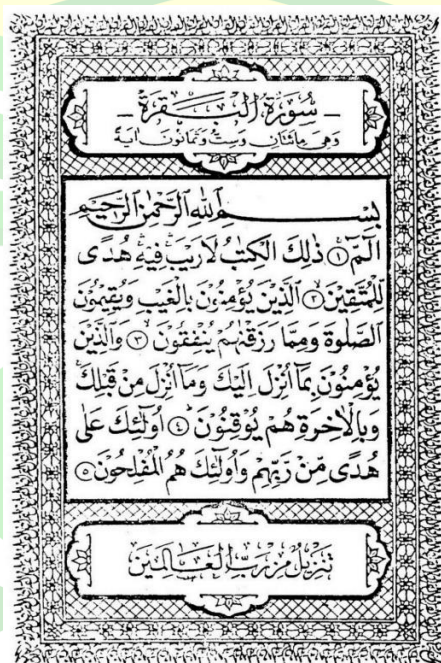 سُورَةُ الْبَقَرَةِ
وَهِيَ مِائَتَانِ وَسِتٌّ وَثَمَانُونَ آيَةً
بِسْمِ اللهِ الرَّحْمٰنِ الرَّحِيمِ
الٓمّٓ ۝١ ذٰلِكَ الْكِتٰبُ لَا رَيْبَ فِيهِ هُدًى
لِلْمُتَّقِينَ ۝٢ الَّذِينَ يُؤْمِنُونَ بِالْغَيْبِ وَيُقِيمُونَ
الصَّلٰوةَ وَمِمَّا رَزَقْنٰهُمْ يُنْفِقُونَ ۝٣ وَالَّذِينَ
يُؤْمِنُونَ بِمَا أُنْزِلَ إِلَيْكَ وَمَا أُنْزِلَ مِنْ قَبْلِكَ
وَبِالْاٰخِرَةِ هُمْ يُوقِنُونَ ۝٤ أُولٰئِكَ عَلٰى
هُدًى مِنْ رَبِّهِمْ وَأُولٰئِكَ هُمُ الْمُفْلِحُونَ ۝٥
تَنْزِيلٌ مِنْ رَبِّ الْعَالَمِينَ